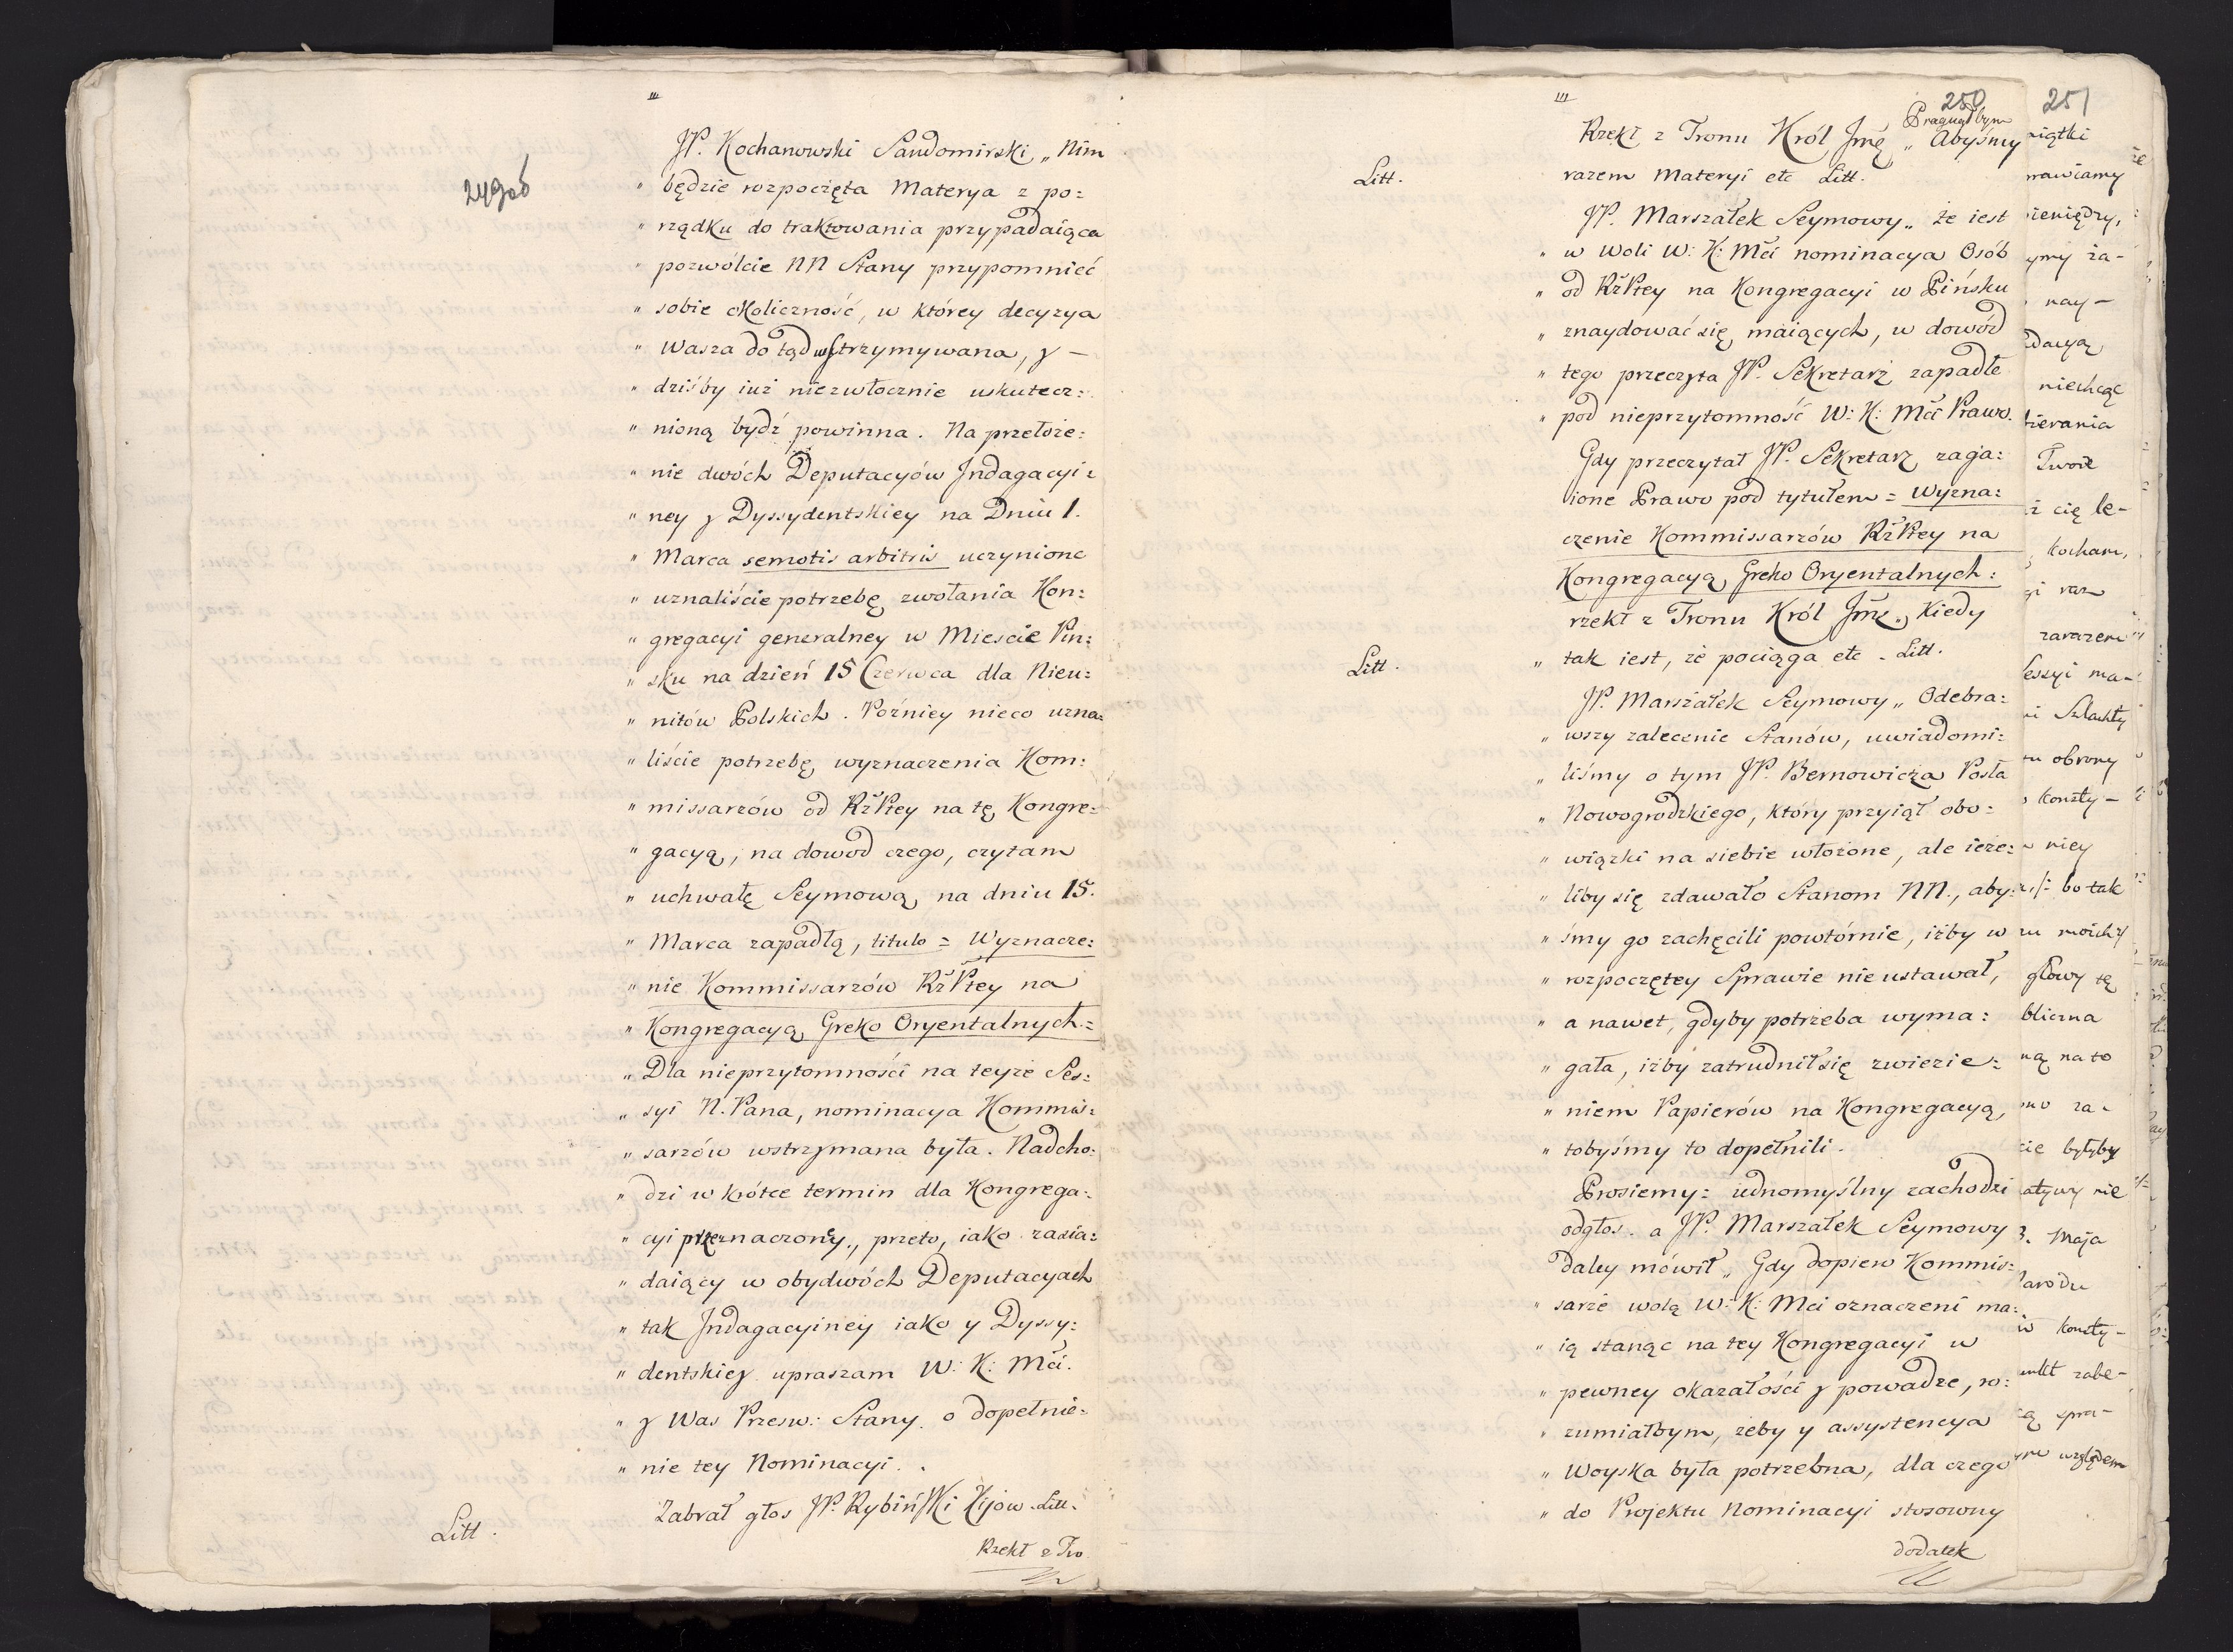 249ob
JP. Kochanowski Sandomirski „ Nim
„ będzie rozpoczęta Materya z po:
„ rządku do traktowania przypadaiąca
„ pozwólcie NN Stany przypomnieć
„ sobie okoliczność, w którey decyzya
„ Wasza do tąd wstrzymywana, y –
„ dziśby iuż niezwłocznie uskutecz:
„ nioną bydź powinna. Na przełoże:
„ nie dwóch Deputacyów Jndagacyi:
„ ney y Dyssydentskiey na Dniu 1.
„ Marca semotis arbitris uczynione
„ uznaliście potrzebę zwołania Kon:
„ gregacyi generalney w Miescie Pin:
„ sku na dzień 15 Czerwca dla Nieu:
„ nitów Polskich. Poźniey nieco uzna:
„ liście potrzebę wyznaczenia Kom:
„ missarzów od RżPtey na tę Kongre:
„ gacyą, na dowod czego, czytam
„ uchwałę Seymową na dniu 15.
„ Marca zapadłą, titulo = Wyznacze:
„ nie Kommissarzów RżPtey na
„ Kongregacyą Greko Oryentalnych =
„ Dla nieprzytomności na teyże Ses:
„ syi N. Pana, nominacya Kommis:
„ sarzów wstrzymana była. Nadcho:
„ dzi w krótce termin dla Kongrega:
„ cyi przeznaczony, przeto, iako zasia:
„ daiący w obydwóch Deputacyach
„ tak Jndagacyiney iako y Dyssy:
„ dentskiey upraszam W: K: Mći.
„ y Was Przesw: Stany o dopełnie:
„ nie tey Nominacyi.
Litt.
Zabrał głos JP. Rybiński Kijow. Litt.
Rzekł z Tro
250
Pragnąłbym
Rzekł z Tronu Król Jmć „ Abyśmy
Litt.
razem Materyi etc Litt.
JP. Marszałek Seymowy „ że iest
„ w woli W: K: Mći nominacya Osób
„ od RżPtey na Kongregacyi w Pińsku
„ znaydować się maiących, w dowód
„ tego przeczyta JP. Sekretarz zapadłe
„ pod nieprzytomność W: K: Mći Prawo.
Gdy przeczytał JP. Sekretarz zaga:
ione Prawo pod tytułem = Wyzna:
czenie Kommissarzów RżPtey na
Kongregacyą Greko Oryentalnych:
rzekł z Tronu Król Jmć „ Kiedy
Litt.
„ tak iest, że pociąga etc. Litt.
JP. Marszałek Seymowy „ Odebra:
„ wszy zalecenie Stanów, uwiadomi:
„ liśmy o tym JP. Bernowicza Posła
„ Nowogrodzkiego, który przyiął obo:
„ wiązki na siebie włożone, ale ieże:
„ liby się zdawało Stanom NN., aby:
„ śmy go zachęcili powtórnie, iżby w
„ rozpoczętey Sprawie nie ustawał,
„ a nawet, gdyby potrzeba wyma:
„ gała, iżby zatrudnił się zwiezie:
„ niem Papierów na Kongregacyą,
„ tobyśmy to dopełnili.
Prosiemy = iednomyślny zachodzi
odgłos. a JP. Marszałek Seymowy
daley mówił „ Gdy dopiero Kommis:
„ sarze wolą W: K: Mci oznaczeni ma:
„ ią stanąc na tey Kongregacyi w
„ pewney okazałości y powadze, ro:
„ zumiałbym, żeby y assystencya
„ Woyska była potrzebna, dla czego
„ do Projektu Nominacyi stosowny
dodatek
251
niechcąc
Twoie
cię le-
kocham,
raz
zarazem
ma-
Szlachty
obrony
konsty-
niey
bo tak
moich
głowy tę
na to
za-
byłyby
nie
3. Maja
konsty-
zabe-
spra-
względem